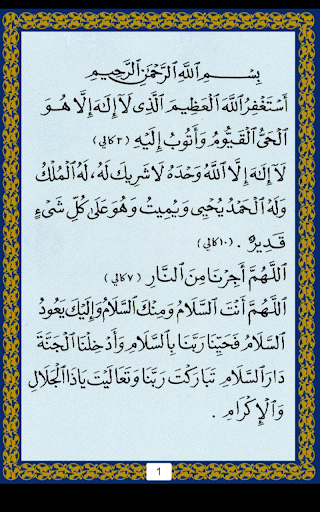 بِسْمِ ٱللَّهِ ٱلرَّحْمَٰنِ ٱلرَّحِيمِ
أَسْتَغْفِرُ ٱللَّهَ ٱلْعَظِيمَ ٱلَّذِى لَآ إِلَٰهَ إِلَّا هُوَ
ٱلْحَىُّ ٱلْقَيُّومُ وَأَتُوبُ إِلَيْهِ (٣كالي)
لَآ إِلَٰهَ إِلَّا ٱللَّهُ وَحْدَهُ لَا شَرِيكَ لَهُ، لَهُ ٱلْمُلْكُ
وَلَهُ ٱلْحَمْدُ يُحْيِى وَيُمِيتُ وَهُوَ عَلَىٰ كُلِّ شَىْءٍ
قَدِيرٌ . (١٠كالي)
ٱللَّهُمَّ أَجِرْنَا مِنَ ٱلنَّارِ (٧كالي)
ٱللَّهُمَّ أَنْتَ ٱلسَّلَامُ وَمِنْكَ ٱلسَّلَامُ وَإِلَيْكَ يَعُودُ
ٱلسَّلَامُ فَحَيِّنَا رَبَّنَا بِٱلسَّلَامِ وَأَدْخِلْنَا ٱلْجَنَّةَ
دَارَ ٱلسَّلَامِ تَبَارَكْتَ رَبَّنَا وَتَعَالَيْتَ يَاذَا ٱلْجَلَالِ
وَٱلْإِكْرَامِ .
1